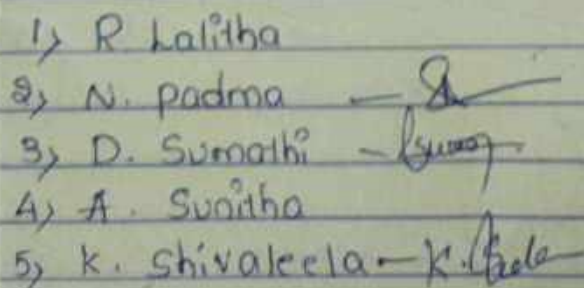 1) R Lalitha
2) N. Padma -
3) D. Sumathi -
4) A. Sunitha
5) K. Shivaleela - K.